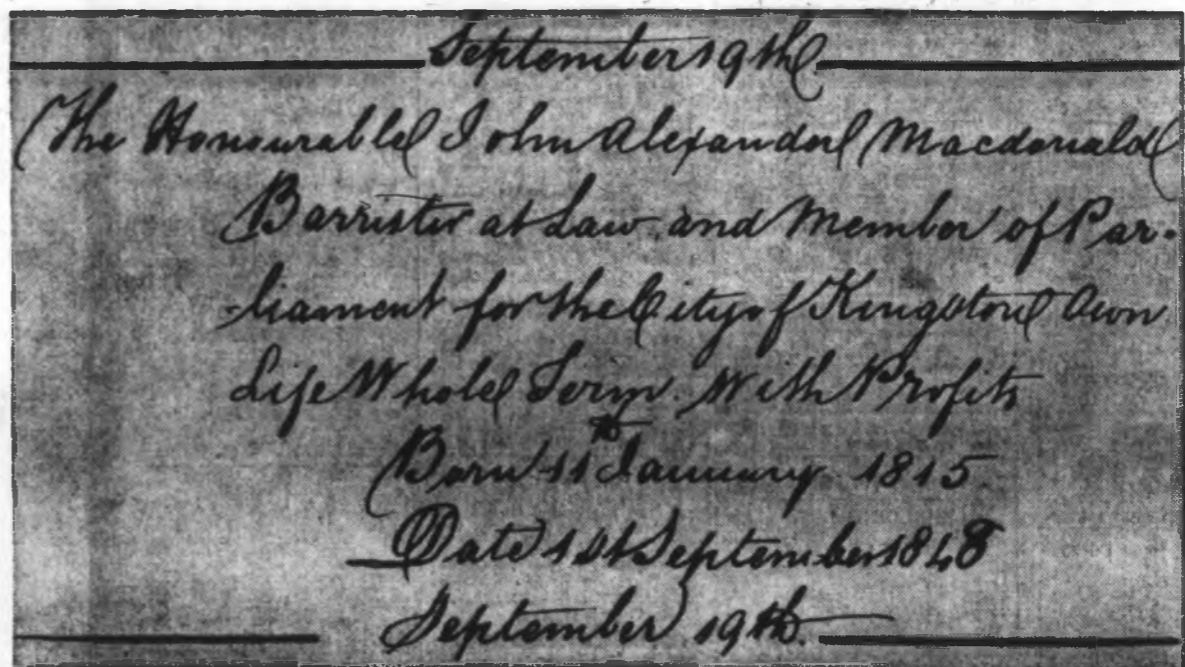 September 19th
The Honourable John Alexander Macdonald
Barrister at Law and Member of Par-
-liament for the City of Kingston Own
Life Whole Term. With Profits
Born 11th January 1815.
Date 1st September 1848
September 19th.